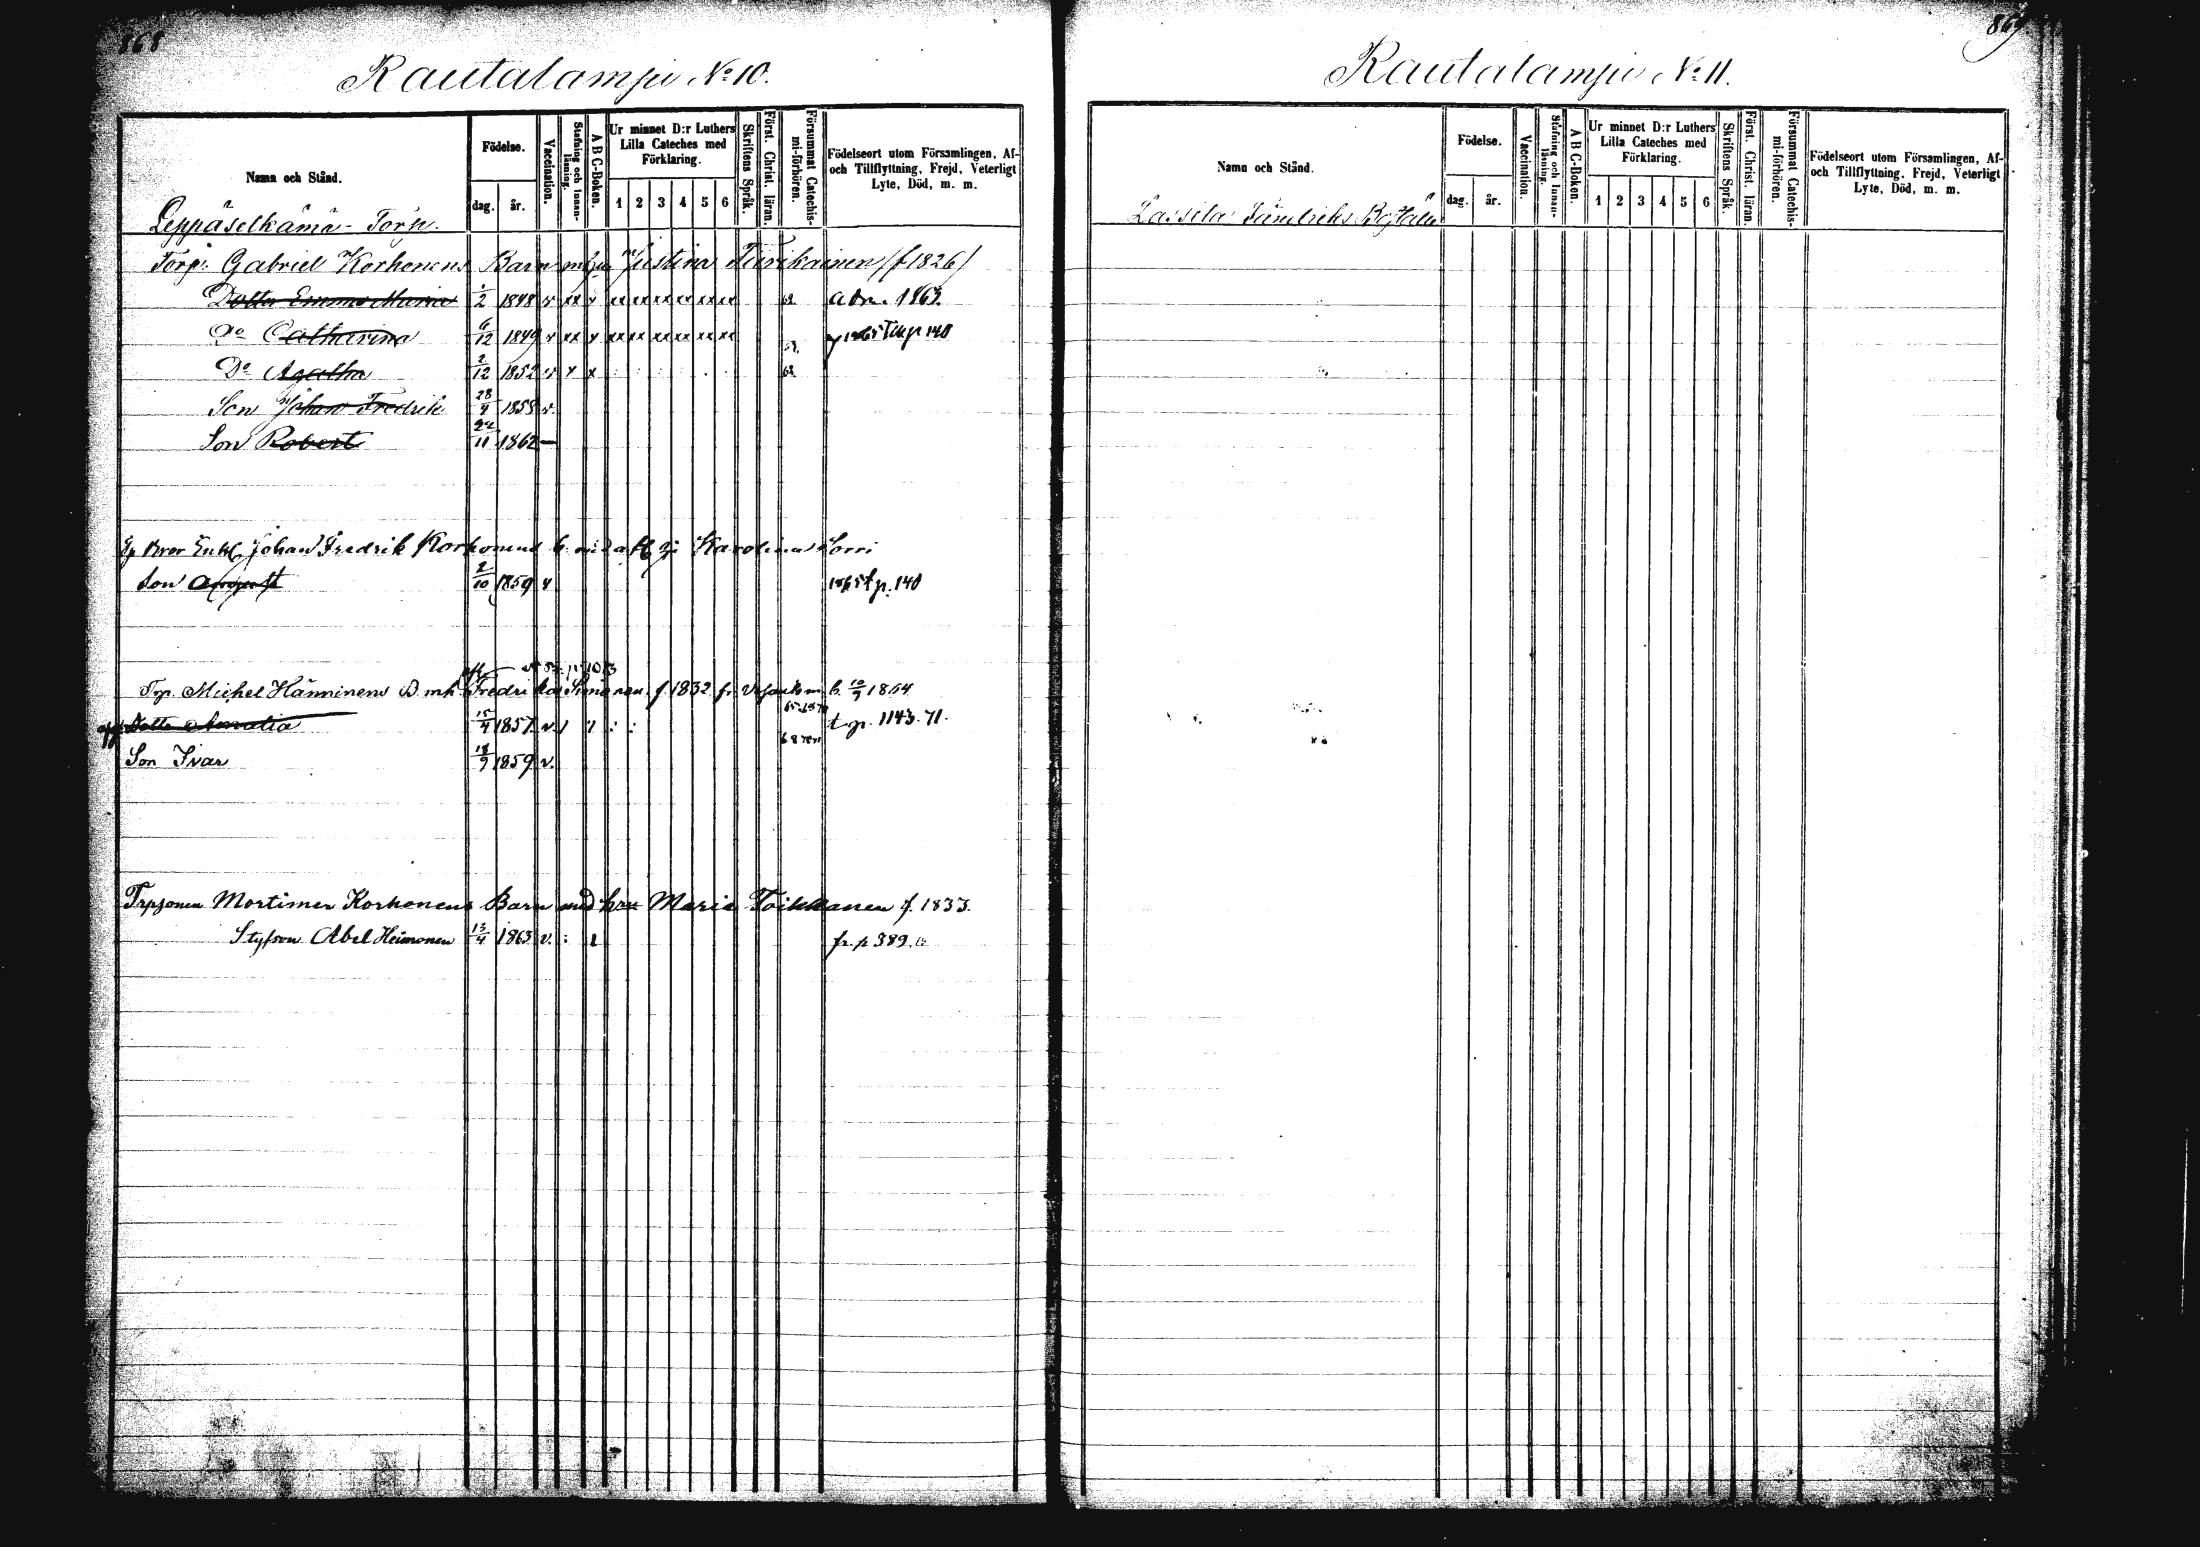 868
Rautalampi No 10.
Namn och Stånd.
Födelse.
dag. år.
Vaccination.
Stafning och Innanläsning.
A B C-Boken.
Ur minnet D:r Luthers Lilla Cateches med Förklaring.
1 2 3 4 5 6
Skriftens Språk.
Först. Christ. läran.
Försummat Catechismi-förhören.
Födelseort utom Församlingen, Af- och Tillflyttning, Frejd, Veterligt Lyte, Död, m. m.
Leppäselkämä-Torp.
Torp: Gabriel Korhonens Barn Justina Tiirikainen (f 1826)
Dotter Emma Maria 1/2 1848 v xx x xx xx xx xx xx xx 62 adm. 1863.
Do Catharina 6/12 1849 v xx x xx xx xx xx xx xx 140
Do Agatha 2/12 1852 v x x 62
Son Johan Fredrik 28/4 1858 v.
Son Robert 24/11 1862 —
Johan Fredrik Korhonens Karolina
Son August 2/10 1859 v 1865 t p. 140
Trp. Michel Hänninens B. Fredrika Simonen f 1832 10/9 1864
Dotter Amalia 15/4 1857 v. t. p. 1143. 71.
Son Ivar 18/9 1859 v.
Trpsonen Mortimer Korhonens Barn med Maria Toikkanen f. 1833.
Styfson Abel Heimonen 13/4 1863 v. : 1 fr. p 389.
869
Rautalampi No 11.
Namn och Stånd.
Födelse.
dag. år.
Vaccination.
Stafning och Innanläsning.
A B C-Boken.
Ur minnet D:r Luthers Lilla Cateches med Förklaring.
1 2 3 4 5 6
Skriftens Språk.
Först. Christ. läran.
Försummat Catechismi-förhören.
Födelseort utom Församlingen, Af- och Tillflyttning, Frejd, Veterligt Lyte, Död, m. m.
Lassila